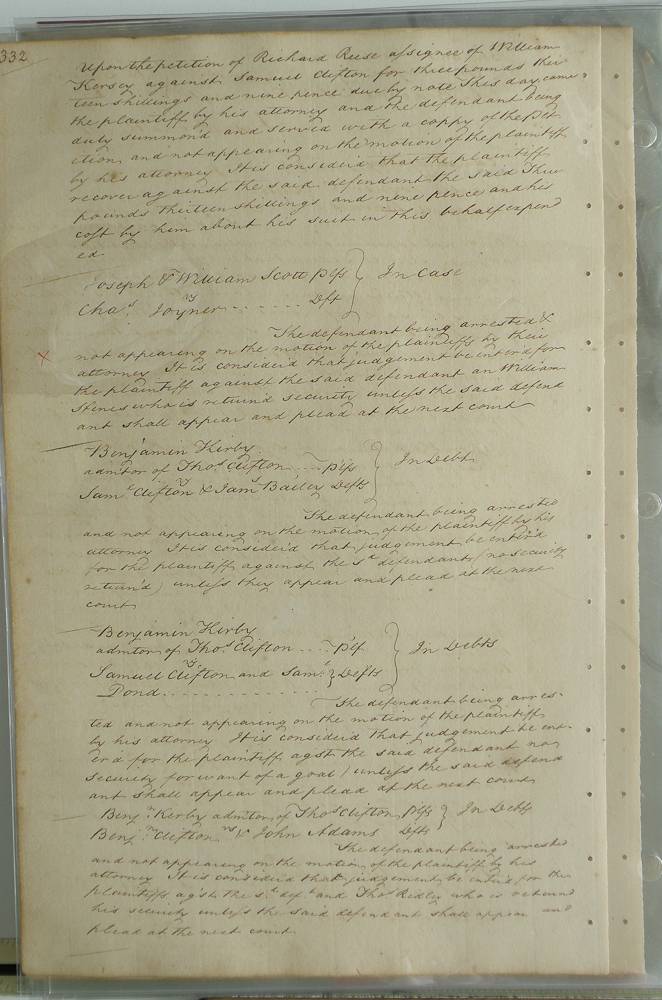 332
Upon the petition of Richard Reese assignee of William
Kersey against Samuel Clifton for three pounds thir
teen shillings and nine pence due by note This day came
the plaintiff by his attorney and the defendant being
duly summon'd and served with a coppy of the pet
ition and not appearing on the motion of the plaintiff
by his attorney It is consider'd that the plaintiff
recover against the said defendant the said Three
pounds thirteen shillings and nine pence and his
cost by him about his suit in this behalf expend
ed
Joseph & William Scott plfs } In Case
vs
Chas. Joyner . . . . . . Deft
The defendant being arrested &
not appearing on the motion of the plaintiffs by their
attorney It is consider'd that judgement be enter'd for
the plaintiff against the said defendant an William
who is return'd security unless the said defend
ant shall appear and plead at the next court
Benjamin Kirby
admtor of Thos. Clifton . . . plfs } In Debt
vs
Saml. Clifton & Jams. Bailey Defts
The defendant being arrested
and not appearing on the motion of the plaintiff by his
attorney It is consider'd that judgement be enter'd
for the plaintiffs against the sd. defendants (no security
return'd) unless they appear and plead at the next
court
Benjamin Kirby
admtor of Thos. Clifton . . . plf } In Debts
vs
Samuel Clifton and Saml. } Defts
Pond . . . . . . . . . . . . . .
The defendant being arres-
ted and not appearing on the motion of the plaintiff
by his attorney It is consider'd that judgement be ent-
er'd for the plaintiff agst the said defendant no
security for want of a goal) unless the said defend
ant shall appear and plead at the next court
Benjn. Kirby admtor of Thos Clifton Plfs } In Debt
vs
Benjn. Clifton & John Adams Defts
The defendant being arrested
and not appearing on the motion of the plaintiff by his
attorney It is consider'd that judgement be enter'd for the
plaintiffs agst the sd. deft. and Thos. Ridley who is returnd
his security unless the said defendant shall appear and
plead at the next court